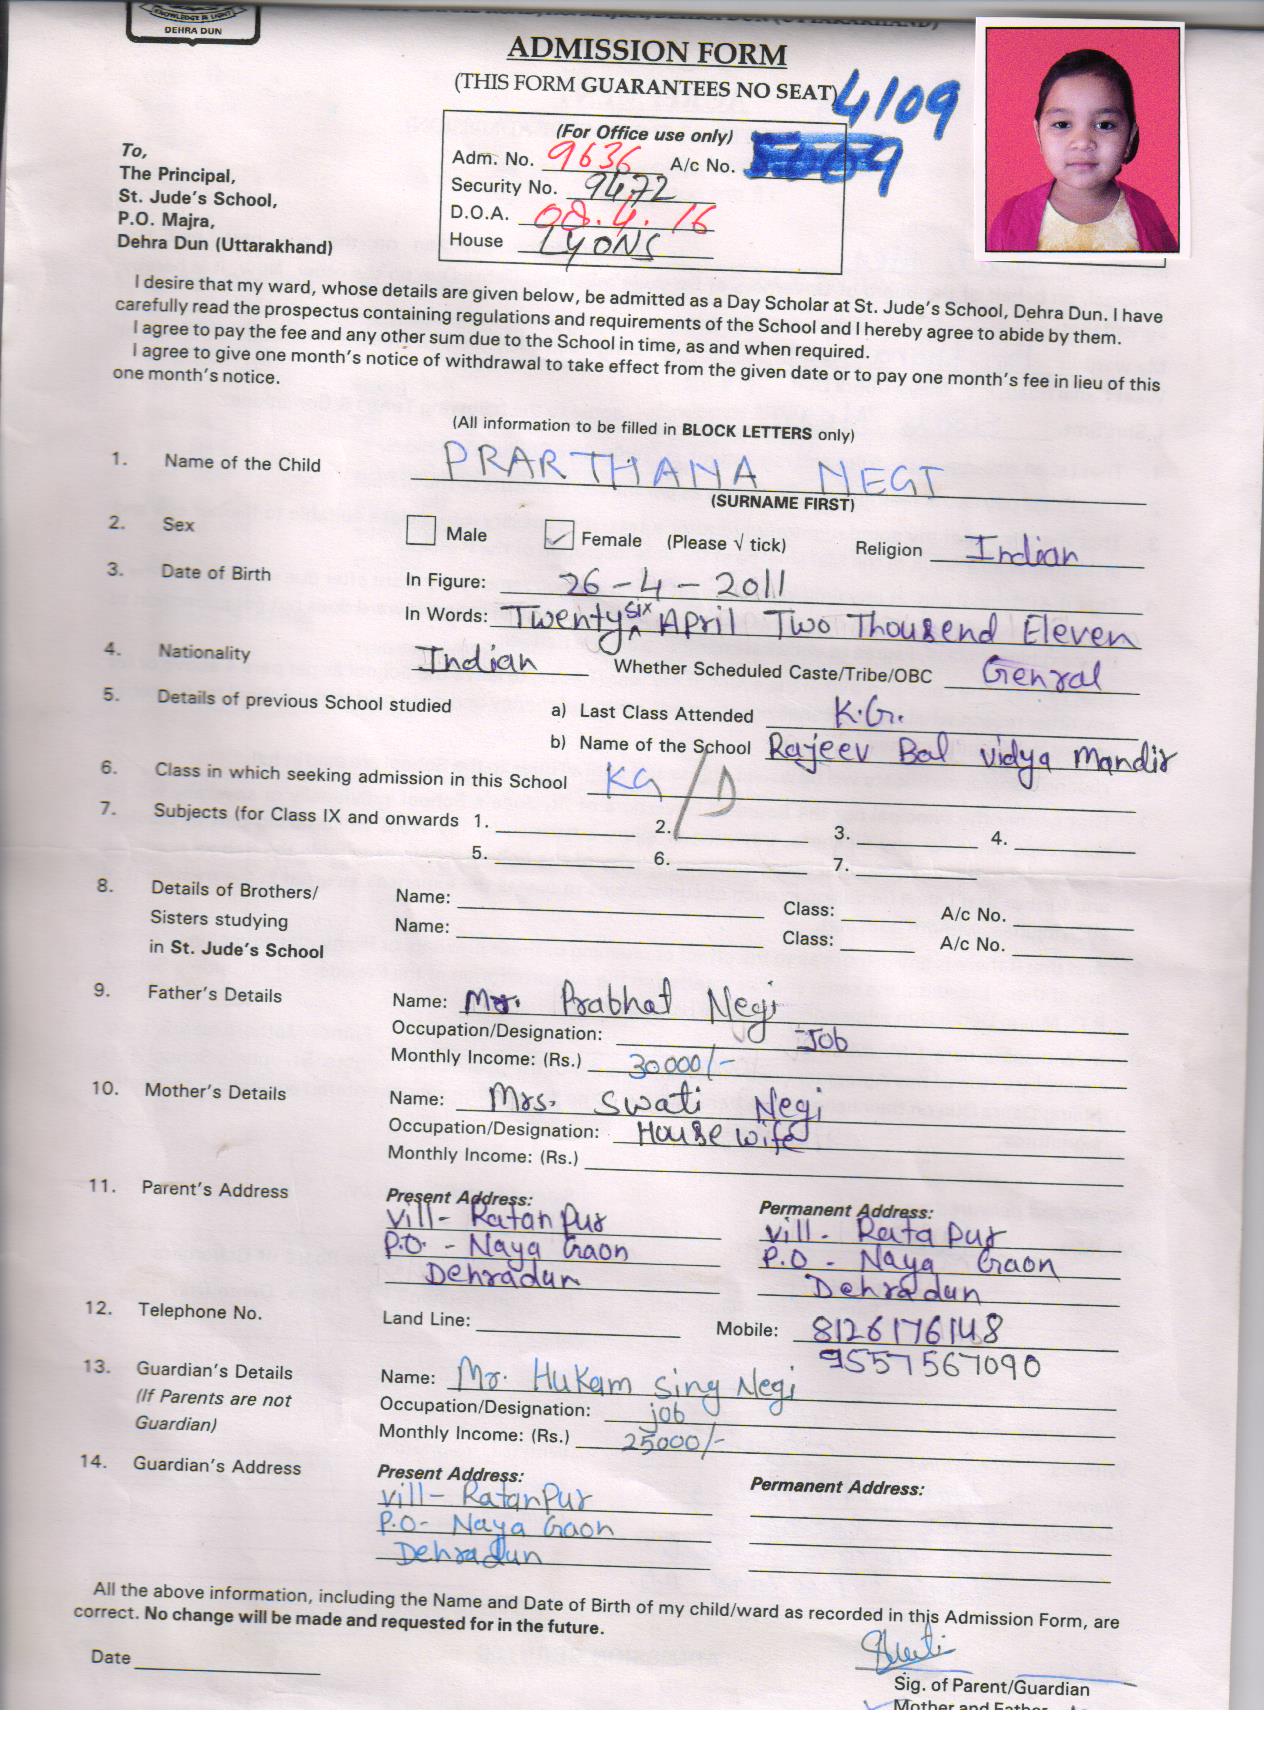 KNOWLEDGE IS LIGHT
DEHRA DUN
ADMISSION FORM
(THIS FORM GUARANTEES NO SEAT)
4109
(For Office use only)
Adm. No. 9636 A/c No.
Security No. 9472
D.O.A. 08.4.16
House LYONS
To,
The Principal,
St. Jude's School,
P.O. Majra,
Dehra Dun (Uttarakhand)
I desire that my ward, whose details are given below, be admitted as a Day Scholar at St. Jude's School, Dehra Dun. I have
carefully read the prospectus containing regulations and requirements of the School and I hereby agree to abide by them.
I agree to pay the fee and any other sum due to the School in time, as and when required.
I agree to give one month's notice of withdrawal to take effect from the given date or to pay one month's fee in lieu of this
one month's notice.
(All information to be filled in BLOCK LETTERS only)
1. Name of the Child PRARTHANA NEGI
(SURNAME FIRST)
2. Sex Male Female (Please √ tick) Religion Indian
3. Date of Birth In Figure: 26-4-2011
In Words: Twenty six April Two Thousend Eleven
4. Nationality Indian Whether Scheduled Caste/Tribe/OBC Genral
5. Details of previous School studied a) Last Class Attended K.G.
b) Name of the School Rajeev Bal vidya Mandir
6. Class in which seeking admission in this School KG/D
7. Subjects (for Class IX and onwards 1. 2. 3. 4.
5. 6. 7.
8. Details of Brothers/ Name: Class: A/c No.
Sisters studying Name: Class: A/c No.
in St. Jude's School
9. Father's Details Name: Mr. Prabhat Negi
Occupation/Designation: Job
Monthly Income: (Rs.) 30000/-
10. Mother's Details Name: Mrs. Swati Negi
Occupation/Designation: House wife
Monthly Income: (Rs.)
11. Parent's Address Present Address: Permanent Address:
Vill- Ratan Pur Vill- Rata Pur
P.O. - Naya Gaon P.O - Naya Gaon
Dehradun Dehradun
12. Telephone No. Land Line: Mobile: 8126176148
9557567090
13. Guardian's Details Name: Mr. Hukam Sing Negi
(If Parents are not Occupation/Designation: job
Guardian) Monthly Income: (Rs.) 25000/-
14. Guardian's Address Present Address: Permanent Address:
Vill- RatanPur
P.O- Naya Gaon
Dehradun
All the above information, including the Name and Date of Birth of my child/ward as recorded in this Admission Form, are
correct. No change will be made and requested for in the future.
Date
Sig. of Parent/Guardian
Mother and Father